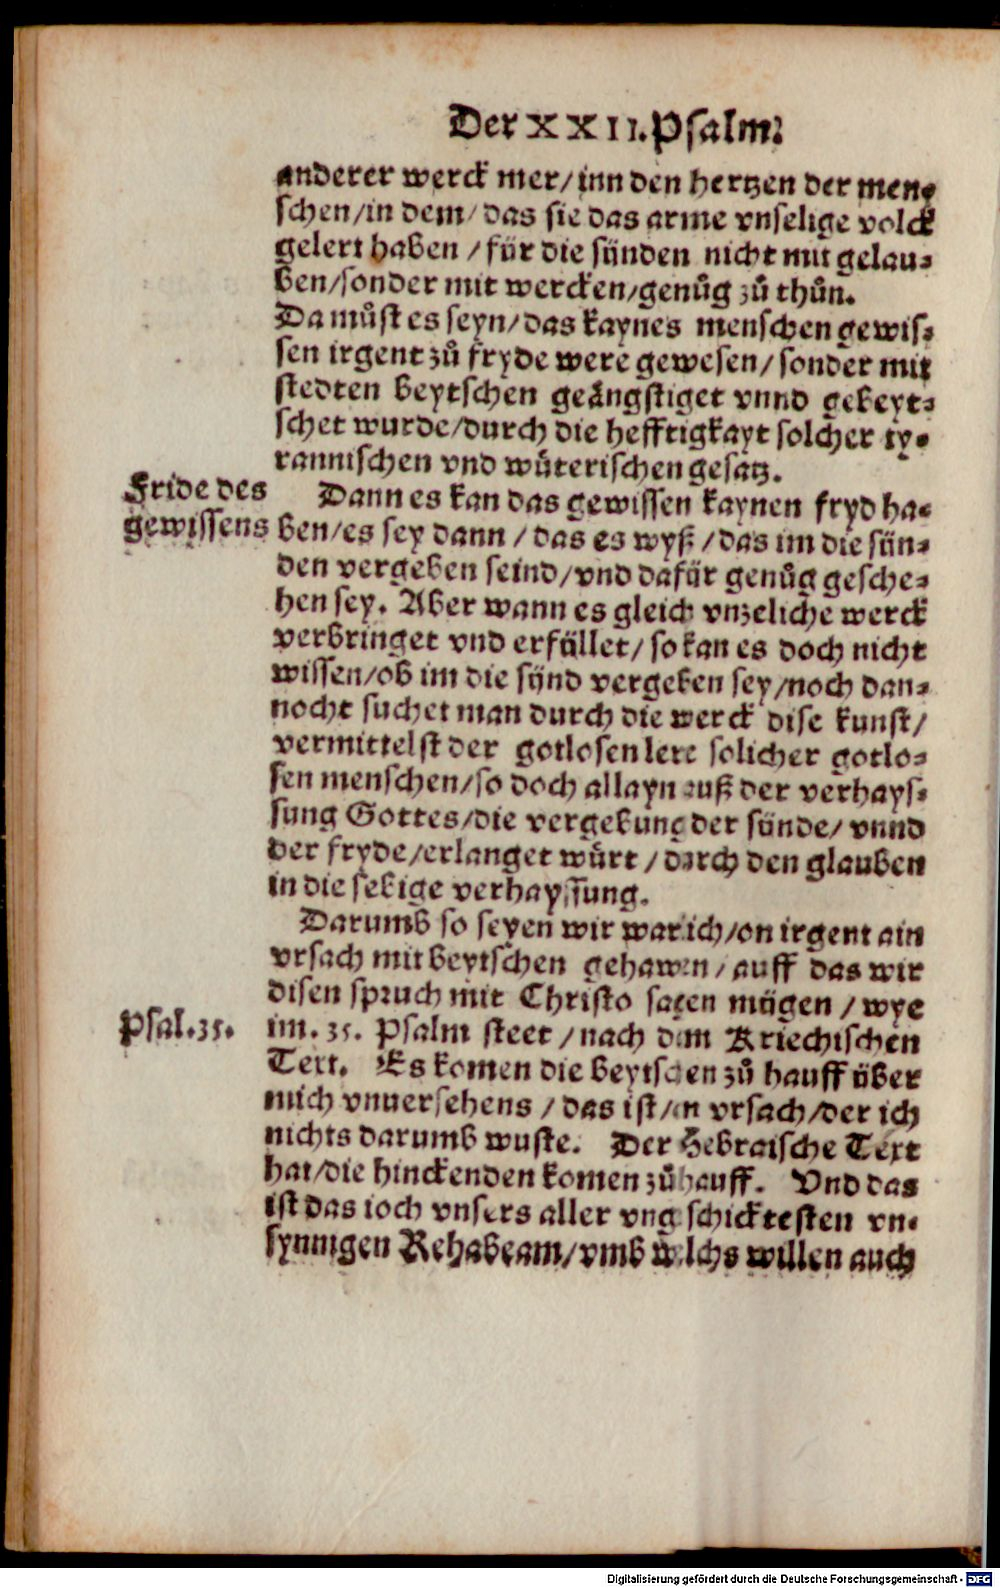 Der XXII. Psalm.
anderer werck mer/inn den hertzen der men-
schen/in dem/das sie das arme vnselige volck
gelert haben/für die sünden nicht mit gelau-
ben/sonder mit wercken/genůg zů thůn.
Da můst es seyn/das kaynes menschen gewis-
sen irgent zů fryde were gewesen/sonder mit
stedten beytschen geängstiget vnnd gebeyt-
schet wurde/durch die hefftigkayt solcher ty-
rannischen vnd wüterischen gesatz.
Fride des
gewissens
Dann es kan das gewissen kaynen fryd ha-
ben/es sey dann/das es wyß/das im die sün-
den vergeben seind/vnd dafür genůg gesche-
hen sey. Aber wann es gleich vnzeliche werck
verbringet vnd erfüllet/so kan es doch nicht
wissen/ob im die sünd vergeben sey/noch dan-
nocht suchet man durch die werck dise kunst/
vermittelst der gotlosen lere solicher gotlo-
sen menschen/so doch allayn auß der verhays-
sung Gottes/die vergebung der sünde/vnnd
der fryde/erlanget würt/durch den glauben
in die selige verhayssung.
Darumb so seyen wir warlich/on irgent ain
vrsach mit beytschen gehawen/auff das wir
disen spruch mit Christo sagen mügen/wye
Psal.35.
im.35. Psalm steet/nach dem Kriechischen
Text. Es komen die beytschen zů hauff über
mich vnuersehens/das ist/on vrsach/der ich
nichts darumb wuste. Der Hebraische Text
hat/die hinckenden komen zůhauff. Vnd das
ist das ioch vnsers aller vngeschicktesten vn-
synnigen Rehabeam/vmb welchs willen auch
Digitalisierung gefördert durch die Deutsche Forschungsgemeinschaft - DFG